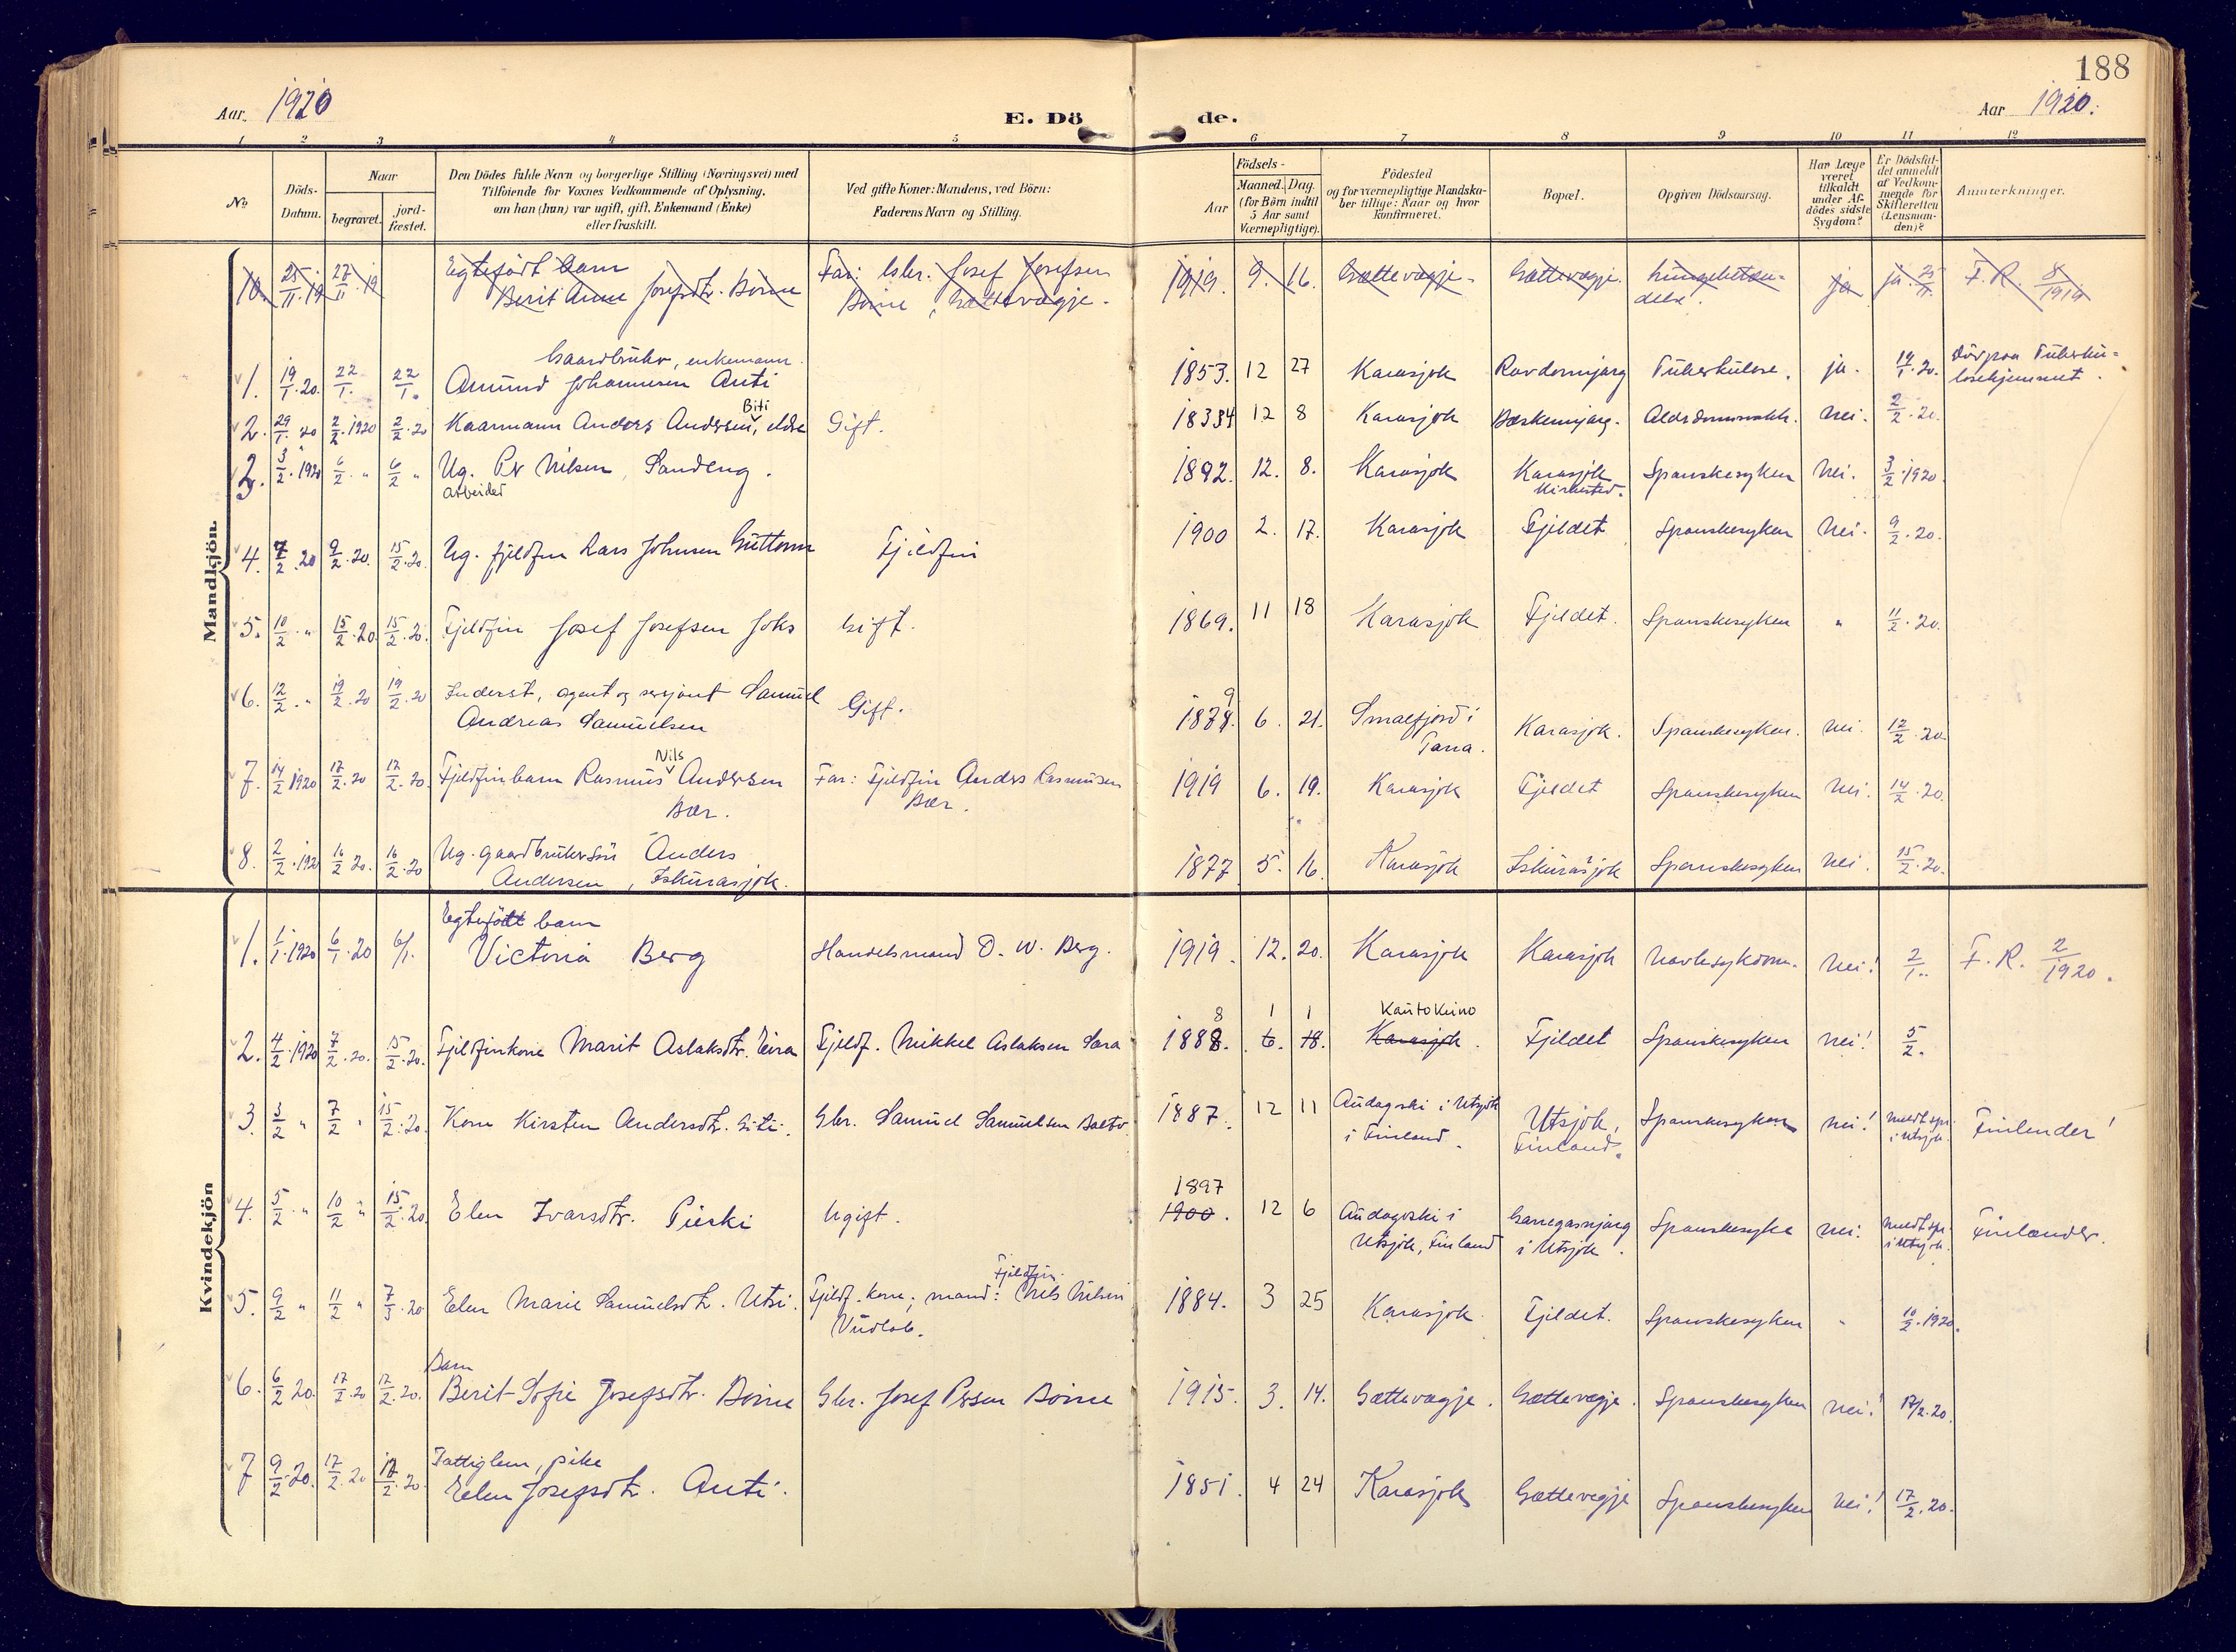 188
Aar. 1920
E. Dö de.
Aar 1920.
1 2 3 4 5 6 7 8 9 10 11 12
No
Döds-Datum.
Naar
begravet.
jord-fæstet.
Den Dödes fulde Navn og borgerlige Stilling (Næringsvei) med
Tilføiende for Voxnes Vedkommende af Oplysning,
om han (hun) var ugift, gift, Enkemand (Enke)
eller fraskilt.
Ved gifte Koner: Mandens, ved Börn:
Faderens Navn og Stilling.
Födsels-
Aar
Maaned. Dag.
(for Børn indtil
5 Aar samt
Værnepligtige).
Födested
og for værnepligtige Mandska-
ber tillige: Naar og hvor
konfirmeret.
Bopæl.
Opgiven Dödsaarsag.
Har Læge
været
tilkaldt
under Af-
dödes sidste
Sygdom?
Er Dödsfal-
det anmeldt
af Vedkom-
mende for
Skifteretten
(Lensman-
den)?
Anmærkninger.
Mandkjön.
10. 25/11.19 27/11.19 Egtefødt barn
Berit Anne Josefsdtr. Boine Far: Gbr. Josef Josefsen
Boine, Gættevagje. 1919. 9. 16. Gættevagje. Gættevagje. Lungebeten-
delse. ja ja. 25/11. F. R. 8/1919
1. 19/1.20. 22/1. 22/1. Gaardbruker, enkemann.
Amund Johannesen Anti 1853. 12 27 Karasjok Ravdornjarg Tuberkulose. ja. 19/1.20. Död paa Tuberku-
losehjemmet.
2. 29/1.20 2/2.1920 2/2.20 Kaarmann Anders Andersen Biti, eldre Gift. 18334 12 8 Karasjok Bæskennjarg. Aldrdomssvakh. Nei. 2/2.20.
3. 3/2.1920 6/2. " 6/2 " Ug. Per Nilsen, Sandeng.
arbeider 1892. 12. 8. Karasjok Karasjok
Kirkested. Spanskesyken Nei. 3/2.1920.
4. 7/2.20 9/2.20. 15/2.20. Ug. fjeldfin Lars Johnsen Guttorm Fjeldfin 1900 2. 17. Karasjok Fjeldet Spanskesyken Nei. 9/2.20.
5. 10/2. " 15/2.20. 15/2.20. Fjeldfin Josef Josefsen Joks Gift. 1869. 11 18 Karasjok Fjeldet. Spanskesyken " 11/2.20.
6. 12/2. " 19/2.20 19/2.20 Inderst, agent og sersjant Samuel
Andreas Samuelsen Gift. 9
1878. 6. 21. Smalfjord i
Tana. Karasjok. Spanskesyken. nei. 12/2.20
7. 14/2 1920 17/2.20 17/2.20. Fjeldfinbarn Rasmus Nils Andersen
Bær. Far: Fjeldfin Anders Rasmusen
Bær. 1919 6. 19. Karasjok Fjeldet Spanskesyken Nei. 14/2.20.
8. 2/2.192 16/2 20. 16/2.20 Ug. gaardbrukersön Anders
Andersen, Iskurasjok. 1877 5. 16. Karasjok Iskurasjok Spanskesyken Nei. 15/2.20.
Kvindekjön
1. 1/1.1920 6/1.20 6/1. Egtefödt barn
Victoria Berg Handelsmand O. W. Berg. 1919. 12. 20. Karasjok Karasjok Navlesykdom. Nei! 2/1.. F. R. 2/1920.
2. 4/2.1920 7/2.20. 15/2.20. Fjeldfinkone Marit Aslaksdtr. Eira Fjeldf. Mikkel Aslaksen Sara 8 1 1 Kautokeino
1888. 6. 18. Karasjok. Fjeldet Spanskesyken nei! 5/2.
3. 3/2 " 7/2 " 15/2.20. Kone Kirsten Andersdtr. Biti. Gbr. Samuel Samuelsen Balto. 1887. 12 11 Audagoski i Utsjok
i Finland. Utsjok,
Finland. Spanskesyken nei! meldt spr.
i Utsjok. Finlender!
4. 5/2. " 10/2 " 15/2.20. Elen Ivarsdtr. Pieski Ugift. 1897
1900. 12 6 Audagoski i
Utsjok, Finland Garregasnjarg
i Utsjok. Spanskesyke nei. meldt spr.
i Utsjok. Finlænder.
5. 9/2 " 11/2 " 7/3.20 Elen Marie Samuelsdtr. Utsi. Fjeldf. kone; mand: Fjeldfin. Nils Nilsen
Vudlab. 1884. 3 25 Karasjok. Fjeldet. Spanskesyken " 10/2.1920.
6. 6/2 20. 17/2.20 17/2.20. Barn
Berit Sofie Josefsdtr. Boine Gbr. Josef Persen Boine 1915. 3. 14. Gættevagje. Gættevagje. Spanskesyken nei! 17/2.20.
7 9/2.20. 17/2.20 17/2.20. Fattiglem, pike
Ellen Josefsdtr. Anti. 1851. 4 24 Karasjok Gættevagje Spanskesyken nei! 17/2.20.